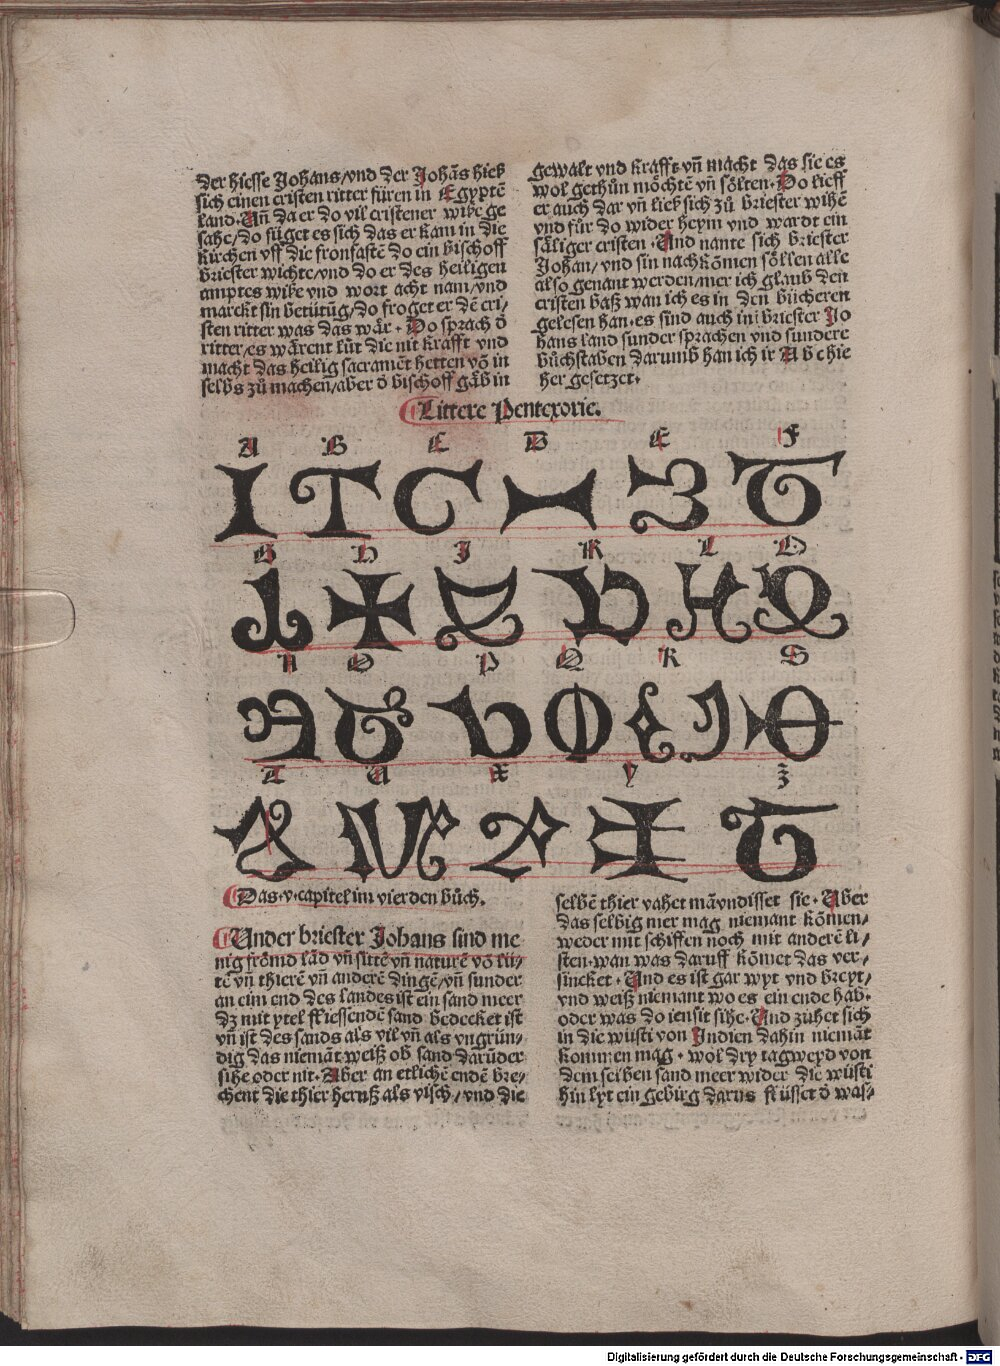 der hiesse Johans/vnd der Johãs hieß
sich einen cristen ritter füren in Egyptē
land. Vñ da er do vil cristener wibe ge
sahe/do füget es sich das er kam in die
kirchen vff die fronfastē do ein bischoff
briester wichte/vnd do er des heiligen
amptes wibe vnd wort acht nam/vnd
marckt sin betütūg/do froget er dē cri/
sten ritter was das wår. Do sprach ď
ritter/es wårent lüt die nit krafft vnd
macht das heilig sacramēt hetten võ in
selbs zů machen/aber ď bischoff gåb in
gewalt vnd krafft vñ macht das sie es
wol gethůn mőchtē vñ sőlten. Do lieff
er auch dar vñ ließ sich zů briester wihē
vnd für do wider heym vnd wardt ein
såliger cristen. Vnd nante sich briester
Johan/vnd sin nachkőmen sőllen alle
also genant werden/mer ich glaub den
cristen baß wan ich es in den bücheren
gelesen han. es sind auch ini briester Jo
hans land sunder sprachen vnd sundere
bůchstaben darumb han ich ir A b c hie
her gesetzet.
Littere Pentexorie.
A B C D E F
G H J K L O
N O P Q R S
T V X Y Z
Das.v.capitel im vierden bůch.
Vnder briester Johans sind me
nig frőmd lād vñ sittē vñ naturē võ lü/
tē vñ thierē vñ anderē dingē/vñ sunder
an eim end des landes ist ein sand meer
dz mit ytel fliessendē sand bedecket ist
vñ ist des sands als vil vñ als vngrün/
dig das niemāt weiß ob sand darűder
sihe oder nit. Aber an etlichē endē bre/
chent die thier heruß als visch/vnd die
selbē thier vahet mã vnd isset sie. Aber
das selbig mer mag niemant kőmen/
weder mit schiffen noch mit anderē li/
sten. wan was daruff kőmet das ver/
sincket. Vnd es ist gar wyt vnd breyt/
vnd weiß niemant wo es ein ende hab.
oder was do iensit sihe. Vnd zühet sich
in die wüsti von Jndien dahin niemāt
kommen mag. wol dry tagweyd von
dem selben sand meer wider die wüsti
hin lyt ein gebirg darus flüsset ď was/
Digitalisierung gefördert durch die Deutsche Forschungsgemeinschaft - DFG